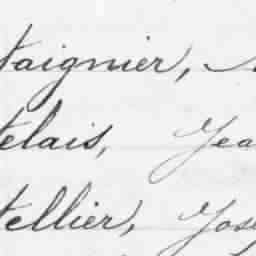 taignier,
telais, Jea
tellier, Jos